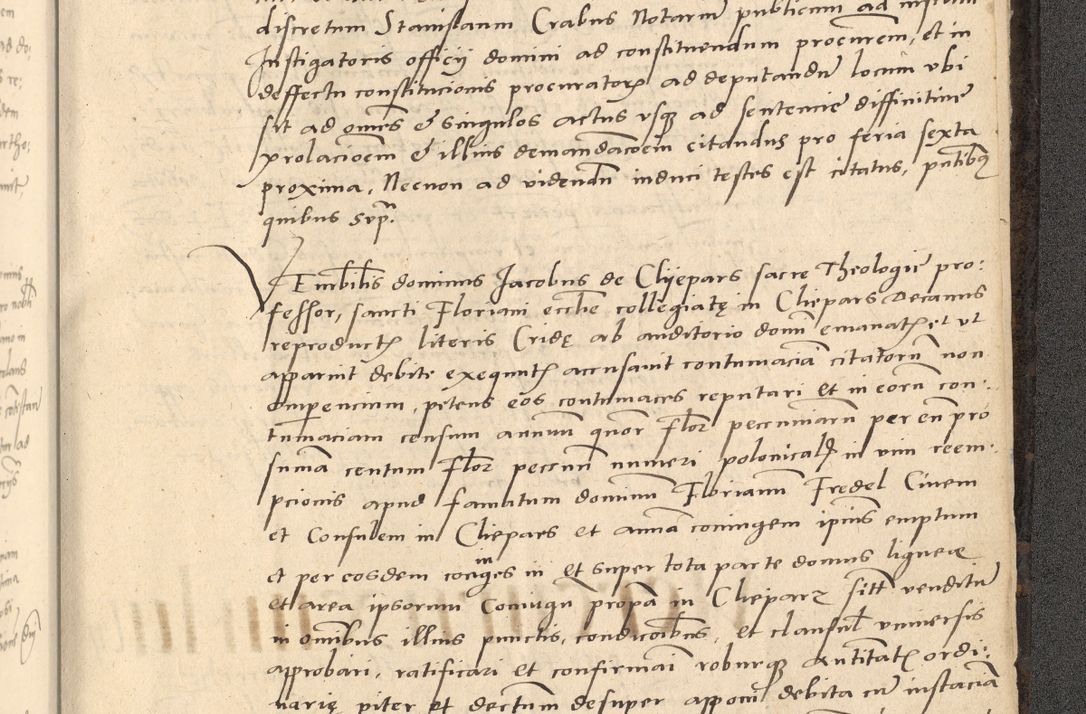 discretum Stanislaum Crabus Notarium publicum ad
Instigatoris officij domini ad constituendum procurem, et in
deffectu constitucionis procuratorꝝ ad deputandū locum vbi
sit ad om̄es & singulos actus vsqꝫ ad sentencie diffinitiue
prolacioem & illius demandacoem citandus pro feria sexta
proxima, Necnon ad videndū induci testes est citatus, pn̄tibꝰ
quibus supra.
VEn̄bilis dominus Jacobus de Clijepars sacre Theologie pro:
fessor, sancti Floriani eccl̄ie collegiatę in Clieparꝫ Decanus
reproductꝭ literis Cridę ab auditorio domī emanatꝭ et ut
apparuit debite exequutꝭ accusauit contumaciā citatorū non
comperencium, petens eos contumaces reputari et in eorū con:
tumaciam censum annuū quor̄ Flor̄ pecuniarū per eū pro
summa centum Flor̄ peccun̄ numeri polonical̄ in vim reem:
pcionis apud famatum dominū Florianū Fredel Ciuem
et Consulem in Cliepars et annā coniugem ipius emptum
et per eosdem coniuges in et super tota parte domus ligneae
et area ipsorum Coniugū propā in Clieparꝫ sitt̄ venditū
in omībus illius punctis, condicoībus, et clausul̄ vniuersis
approbari, ratificari et confirmari roburqꝫ autītatꝭ ordi:
narię piter et decretum desuper apponi debita cū instaciā